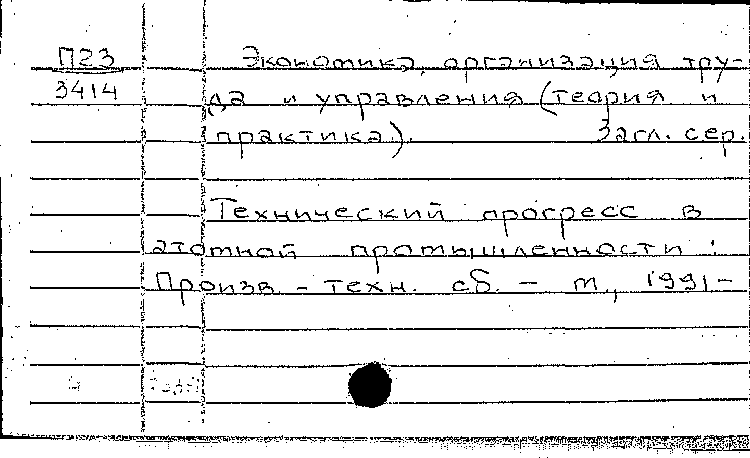 П23
3414
Экономика, организация тру-
да и управления (теория и
практика). Загл. сер.
Технический прогресс в
атомной промышленности :
Произв. - техн. сб. - М., 1991-